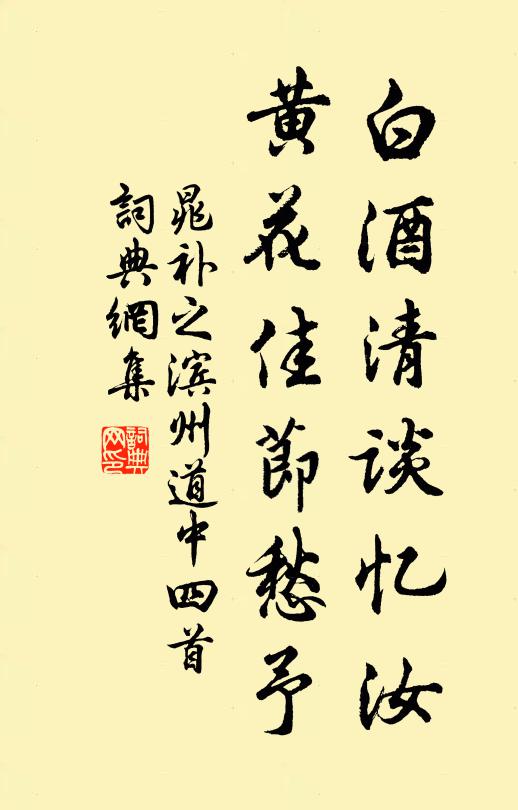 白酒清谈忆汝
黄花佳節愁予
晁补之滨州道中四首
詞典網集
詞典
网印